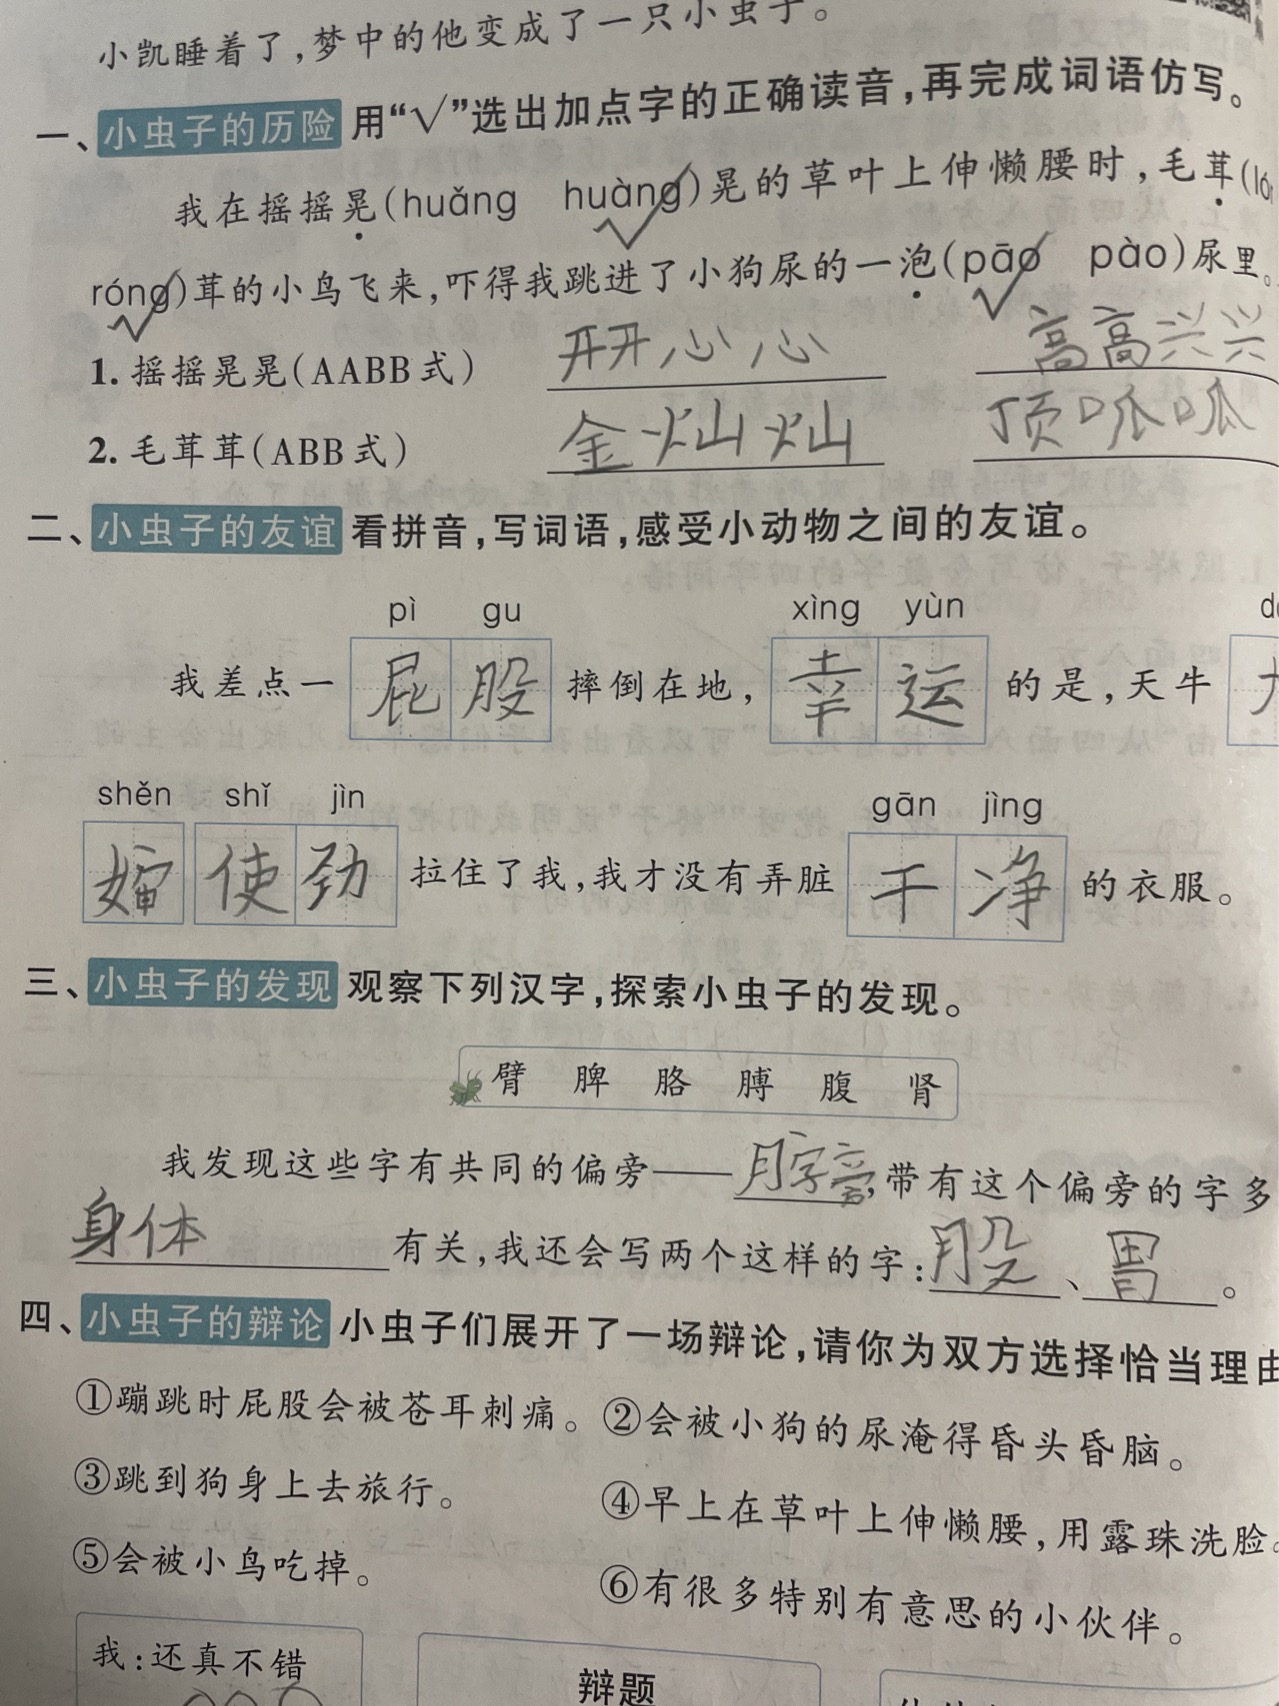 小凯睡着了，梦中的他变成了一只小虫子。
一、小虫子的历险 用“√”选出加点字的正确读音，再完成词语仿写。
我在摇摇晃(huǎng huàng)晃的草叶上伸懒腰时，毛茸(
róng)茸的小鸟飞来，吓得我跳进了小狗尿的一泡(pāo pào)尿里。
1. 摇摇晃晃(AABB式) 开开心心 高高兴兴
2. 毛茸茸(ABB式) 金灿灿 顶呱呱
二、小虫子的友谊 看拼音，写词语，感受小动物之间的友谊。
pì gu xìng yùn
我差点一 屁股 摔倒在地， 幸运 的是，天牛
shěn shǐ jìn gān jìng
婶 使劲 拉住了我，我才没有弄脏 干净 的衣服。
三、小虫子的发现 观察下列汉字，探索小虫子的发现。
臂 脾 胳 膊 腹 肾
我发现这些字有共同的偏旁——月字旁，带有这个偏旁的字多
身体 有关，我还会写两个这样的字：股、胃。
四、小虫子的辩论 小虫子们展开了一场辩论，请你为双方选择恰当理由
①蹦跳时屁股会被苍耳刺痛。 ②会被小狗的尿淹得昏头昏脑。
③跳到狗身上去旅行。 ④早上在草叶上伸懒腰，用露珠洗脸。
⑤会被小鸟吃掉。 ⑥有很多特别有意思的小伙伴。
我：还真不错
辩题